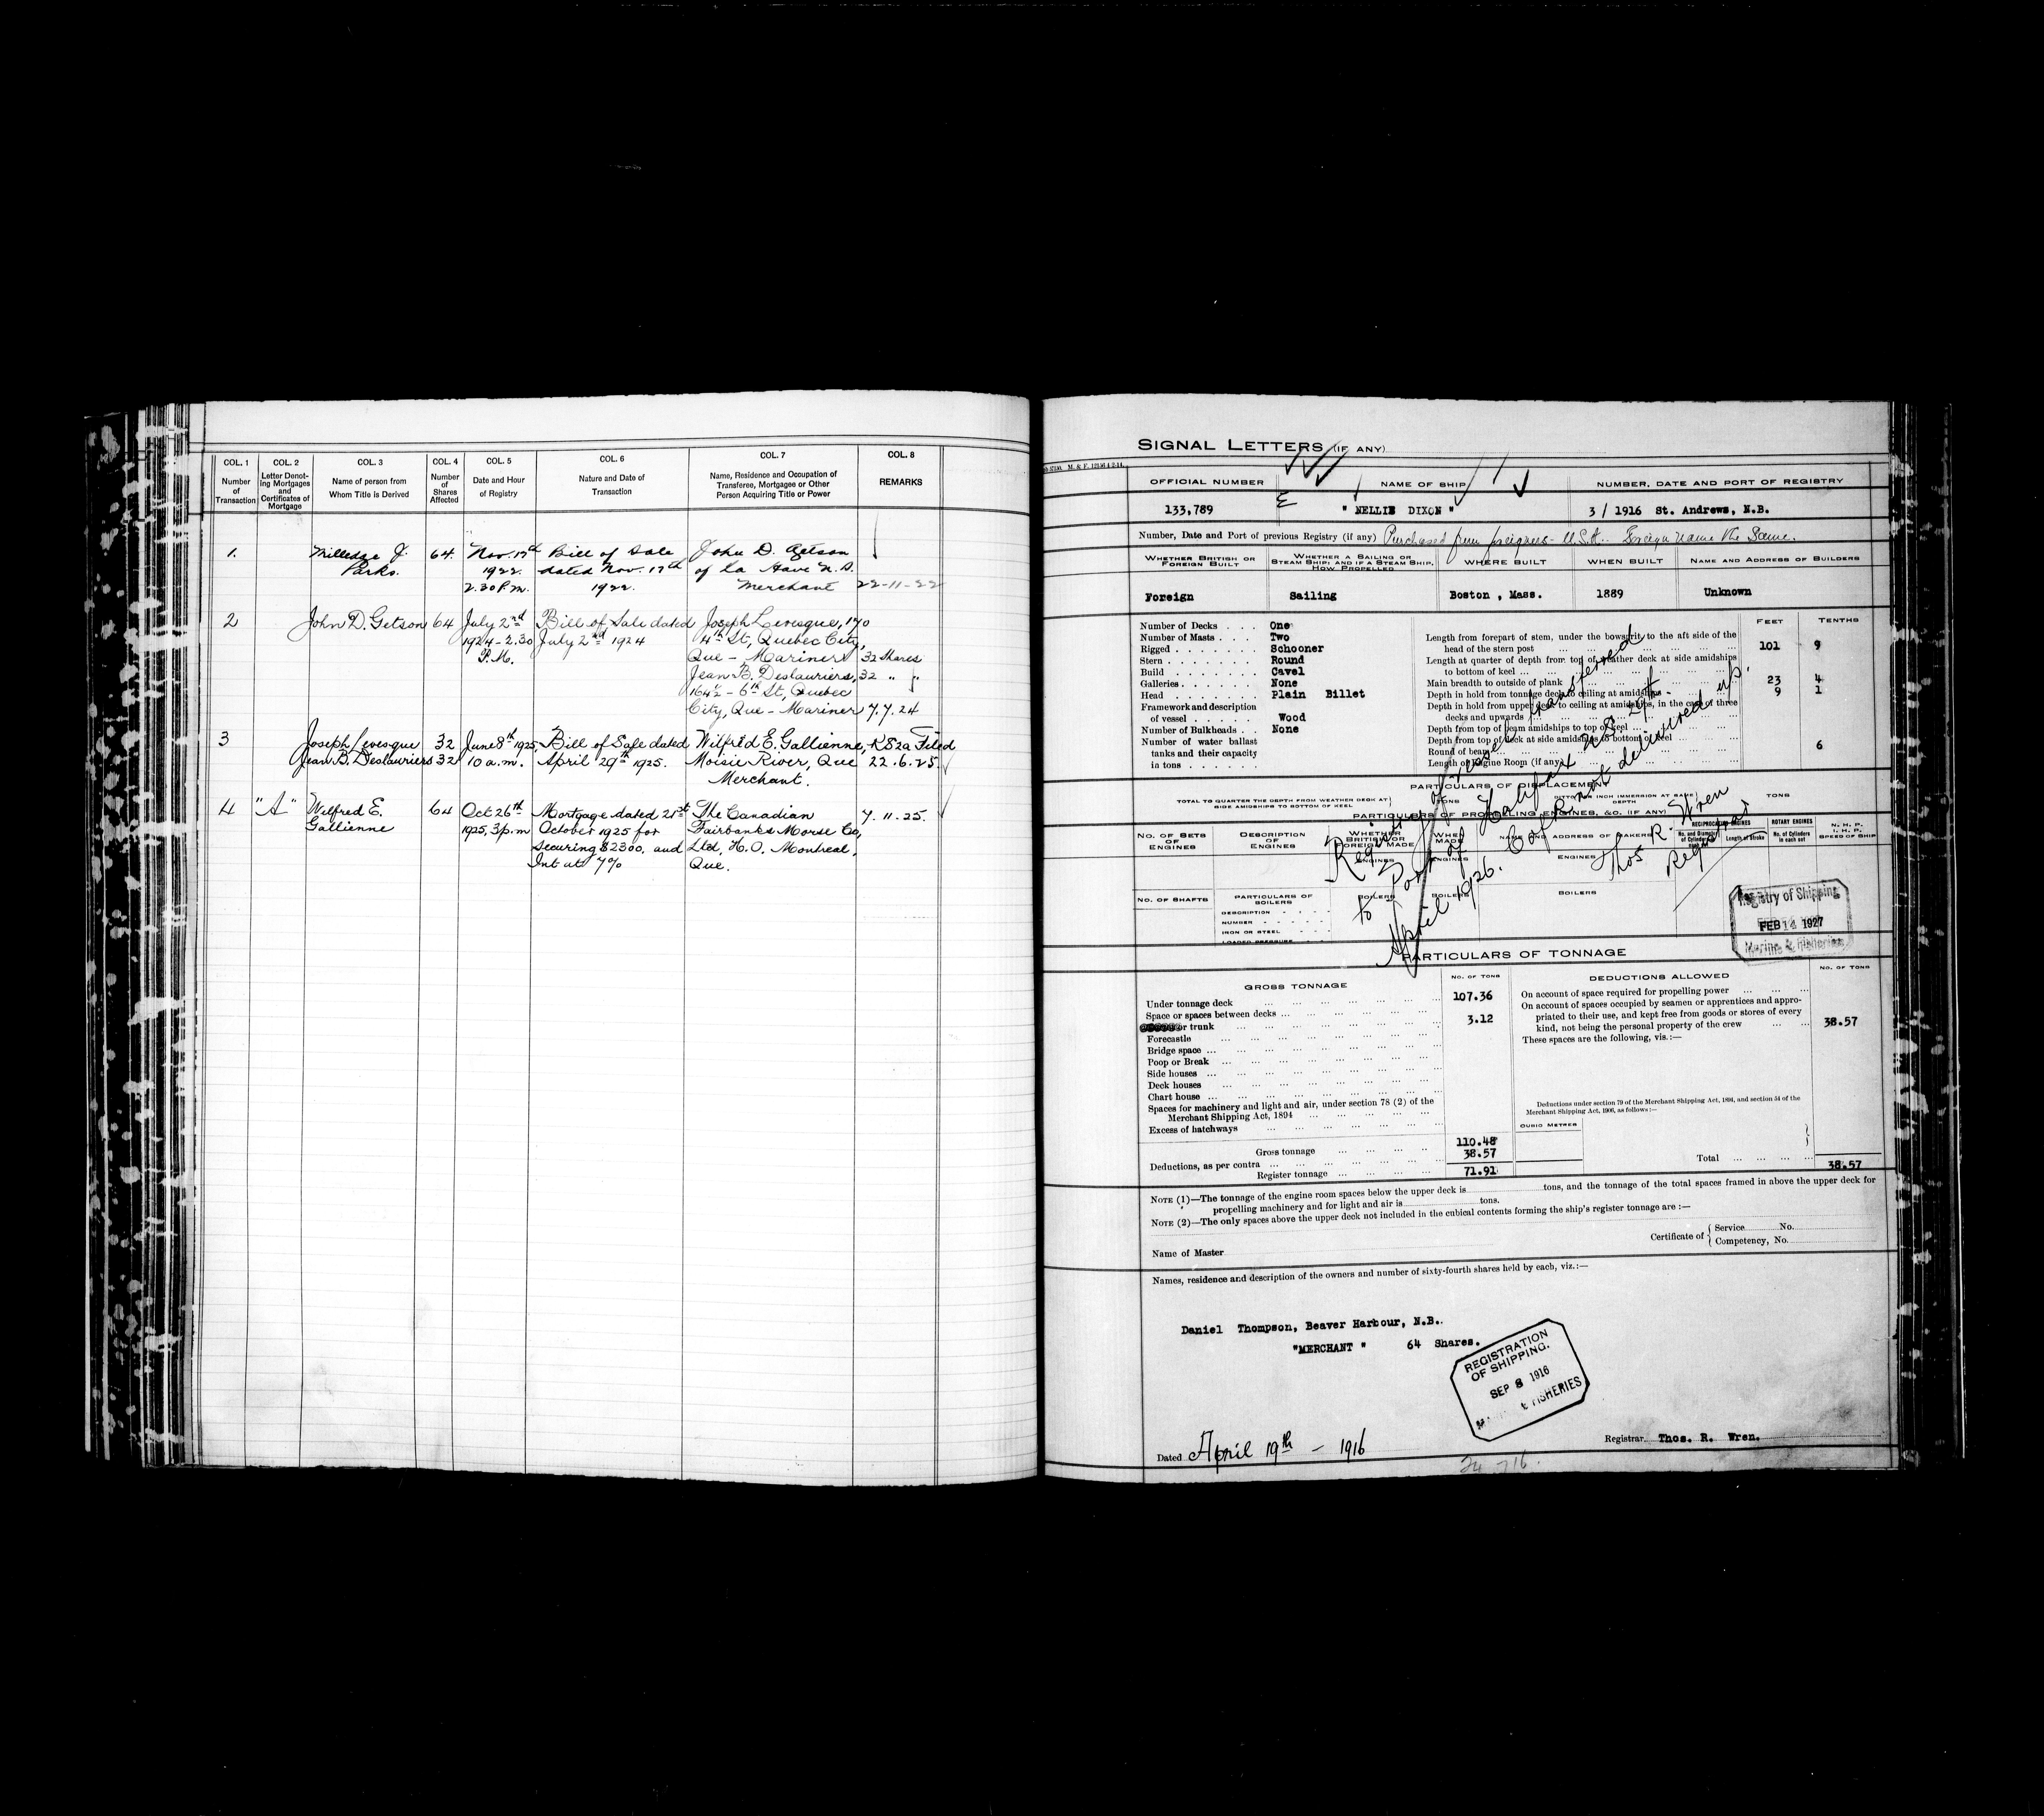 COL. 1 COL. 2 COL. 3 COL. 4 COL. 5 COL. 6 COL. 7 COL. 8
Number of Transaction
Letter Denoting Mortgages and Certificates of Mortgage
Name of person from Whom Title is Derived
Number of Shares Affected
Date and Hour of Registry
Nature and Date of Transaction
Name, Residence and Occupation of Transferee, Mortgagee or Other Person Acquiring Title or Power
REMARKS
1. Milledge J. 64. Nov. 17th Bill of Sale John D. Getson
Parks. 1922. dated Nov. 17th of La Have N.S.
2.30 P.m. 1922. Merchant 22-11-22
2 John D. Getson 64 July 2nd Bill of Sale dated Joseph Levesque, 170
1924-2.30 July 2nd 1924 4th St, Quebec City,
P.M. Que - Mariner 32 shares
Jean B. Deslauriers, 32 " "
164½ - 6th St, Quebec
City, Que - Mariner 7.7.24
3 Joseph Levesque 32 June 8th 1925, Bill of Sale dated Wilfred E. Gallienne, RS2a Filed
Jean B. Deslauriers 32 10 a.m. April 29th 1925. Moisie River, Que 22.6.25
Merchant.
4 "A" Wilfred E. 64 Oct 26th Mortgage dated 21st The Canadian 7.11.25.
Gallienne 1925, 3 p.m October 1925 for Fairbanks Morse Co,
securing $2300. and Ltd, H.O. Montreal,
Int at 7% Que.
SIGNAL LETTERS (IF ANY)
OFFICIAL NUMBER NAME OF SHIP NUMBER, DATE AND PORT OF REGISTRY
133,789 "NELLIE DIXON" 3 / 1916 St. Andrews, N.B.
Number, Date and Port of previous Registry (if any) Purchased from foreigners - U.S.A. Foreign name the Same.
WHETHER BRITISH OR FOREIGN BUILT
WHETHER A SAILING OR STEAM SHIP; AND IF A STEAM SHIP, HOW PROPELLED
WHERE BUILT
WHEN BUILT
NAME AND ADDRESS OF BUILDERS
Foreign Sailing Boston , Mass. 1889 Unknown
FEET TENTHS
Number of Decks One
Number of Masts Two
Rigged Schooner
Stern Round
Build Cavel
Galleries None
Head Plain Billet
Framework and description
of vessel Wood
Number of Bulkheads None
Number of water ballast
tanks and their capacity
in tons
Length from forepart of stem, under the bowsprit, to the aft side of the
head of the stern post 101 9
Length at quarter of depth from top of weather deck at side amidships
to bottom of keel
Main breadth to outside of plank 23 4
Depth in hold from tonnage deck to ceiling at amidships 9 1
Depth in hold from upper deck to ceiling at amidships, in the case of three
decks and upwards
Depth from top of beam amidships to top of keel
Depth from top of deck at side amidships to bottom of keel
Round of beam 6
Length of Engine Room (if any)
Registry of Vessel transferred
to Port of Halifax N.S. 29th
April 1926. Cof R not delivered up.
Thos R. Wren
Registrar
PARTICULARS OF DISPLACEMENT
TOTAL TO QUARTER THE DEPTH FROM WEATHER DECK AT SIDE AMIDSHIPS TO BOTTOM OF KEEL TONS
DITTO PER INCH IMMERSION AT SAME DEPTH TONS
PARTICULARS OF PROPELLING ENGINES, &C. (IF ANY)
NO. OF SETS OF ENGINES
DESCRIPTION OF ENGINES
WHETHER BRITISH OR FOREIGN MADE
WHEN MADE
NAME AND ADDRESS OF MAKERS
RECIPROCATING ENGINES
Length of Stroke
ROTARY ENGINES
No. of Cylinders in each set
N. H. P.
I. H. P.
SPEED OF SHIP
ENGINES ENGINES ENGINES
NO. OF SHAFTS
PARTICULARS OF BOILERS
BOILERS BOILERS BOILERS
DESCRIPTION
NUMBER
IRON OR STEEL
LOADED PRESSURE
Registry of Shipping
FEB 14 1927
Marine & Fisheries
PARTICULARS OF TONNAGE
GROSS TONNAGE NO. OF TONS
DEDUCTIONS ALLOWED NO. OF TONS
Under tonnage deck 107.36
Space or spaces between decks
or trunk 3.12
Forecastle
Bridge space
Poop or Break
Side houses
Deck houses
Chart house
Spaces for machinery and light and air, under section 78 (2) of the
Merchant Shipping Act, 1894
Excess of hatchways
Gross tonnage 110.48
Deductions, as per contra 38.57
Register tonnage 71.91
On account of space required for propelling power
On account of spaces occupied by seamen or apprentices and appro-
priated to their use, and kept free from goods or stores of every
kind, not being the personal property of the crew 38.57
These spaces are the following, vis.:—
Deductions under section 79 of the Merchant Shipping Act, 1894, and section 54 of the
Merchant Shipping Act, 1906, as follows:—
CUBIC METRES
Total 38.57
NOTE (1)—The tonnage of the engine room spaces below the upper deck is tons, and the tonnage of the total spaces framed in above the upper deck for
propelling machinery and for light and air is tons.
NOTE (2)—The only spaces above the upper deck not included in the cubical contents forming the ship's register tonnage are :—
Name of Master
Certificate of { Service No.
Competency, No.
Names, residence and description of the owners and number of sixty-fourth shares held by each, viz.:—
Daniel Thompson, Beaver Harbour, N.B.
"MERCHANT " 64 Shares.
REGISTRATION
OF SHIPPING.
SEP 8 1916
FISHERIES
Dated April 19th - 1916
Registrar Thos. R. Wren.